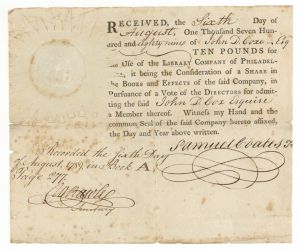 RECEIVED, the Sixth Day of
August, One Thousand Seven Hun-
dred and eighty nine of John D. Coxe, Esq
TEN POUNDS for
Use of the LIBRARY COMPANY of PHILADEL-
it being the Consideration of a SHARE in
the BOOKS and EFFECTS of the said Company, in
Pursuance of a Vote of the DIRECTORS for admit-
ting the said John D. Coxe Esquire
a Member thereof. Witness my Hand and the
common Seal of the said Company hereto affixed,
the Day and Year above written.
Samuel Coates
Recorded the Sixth Day
of August, 1789, in Book A,
Page 277.